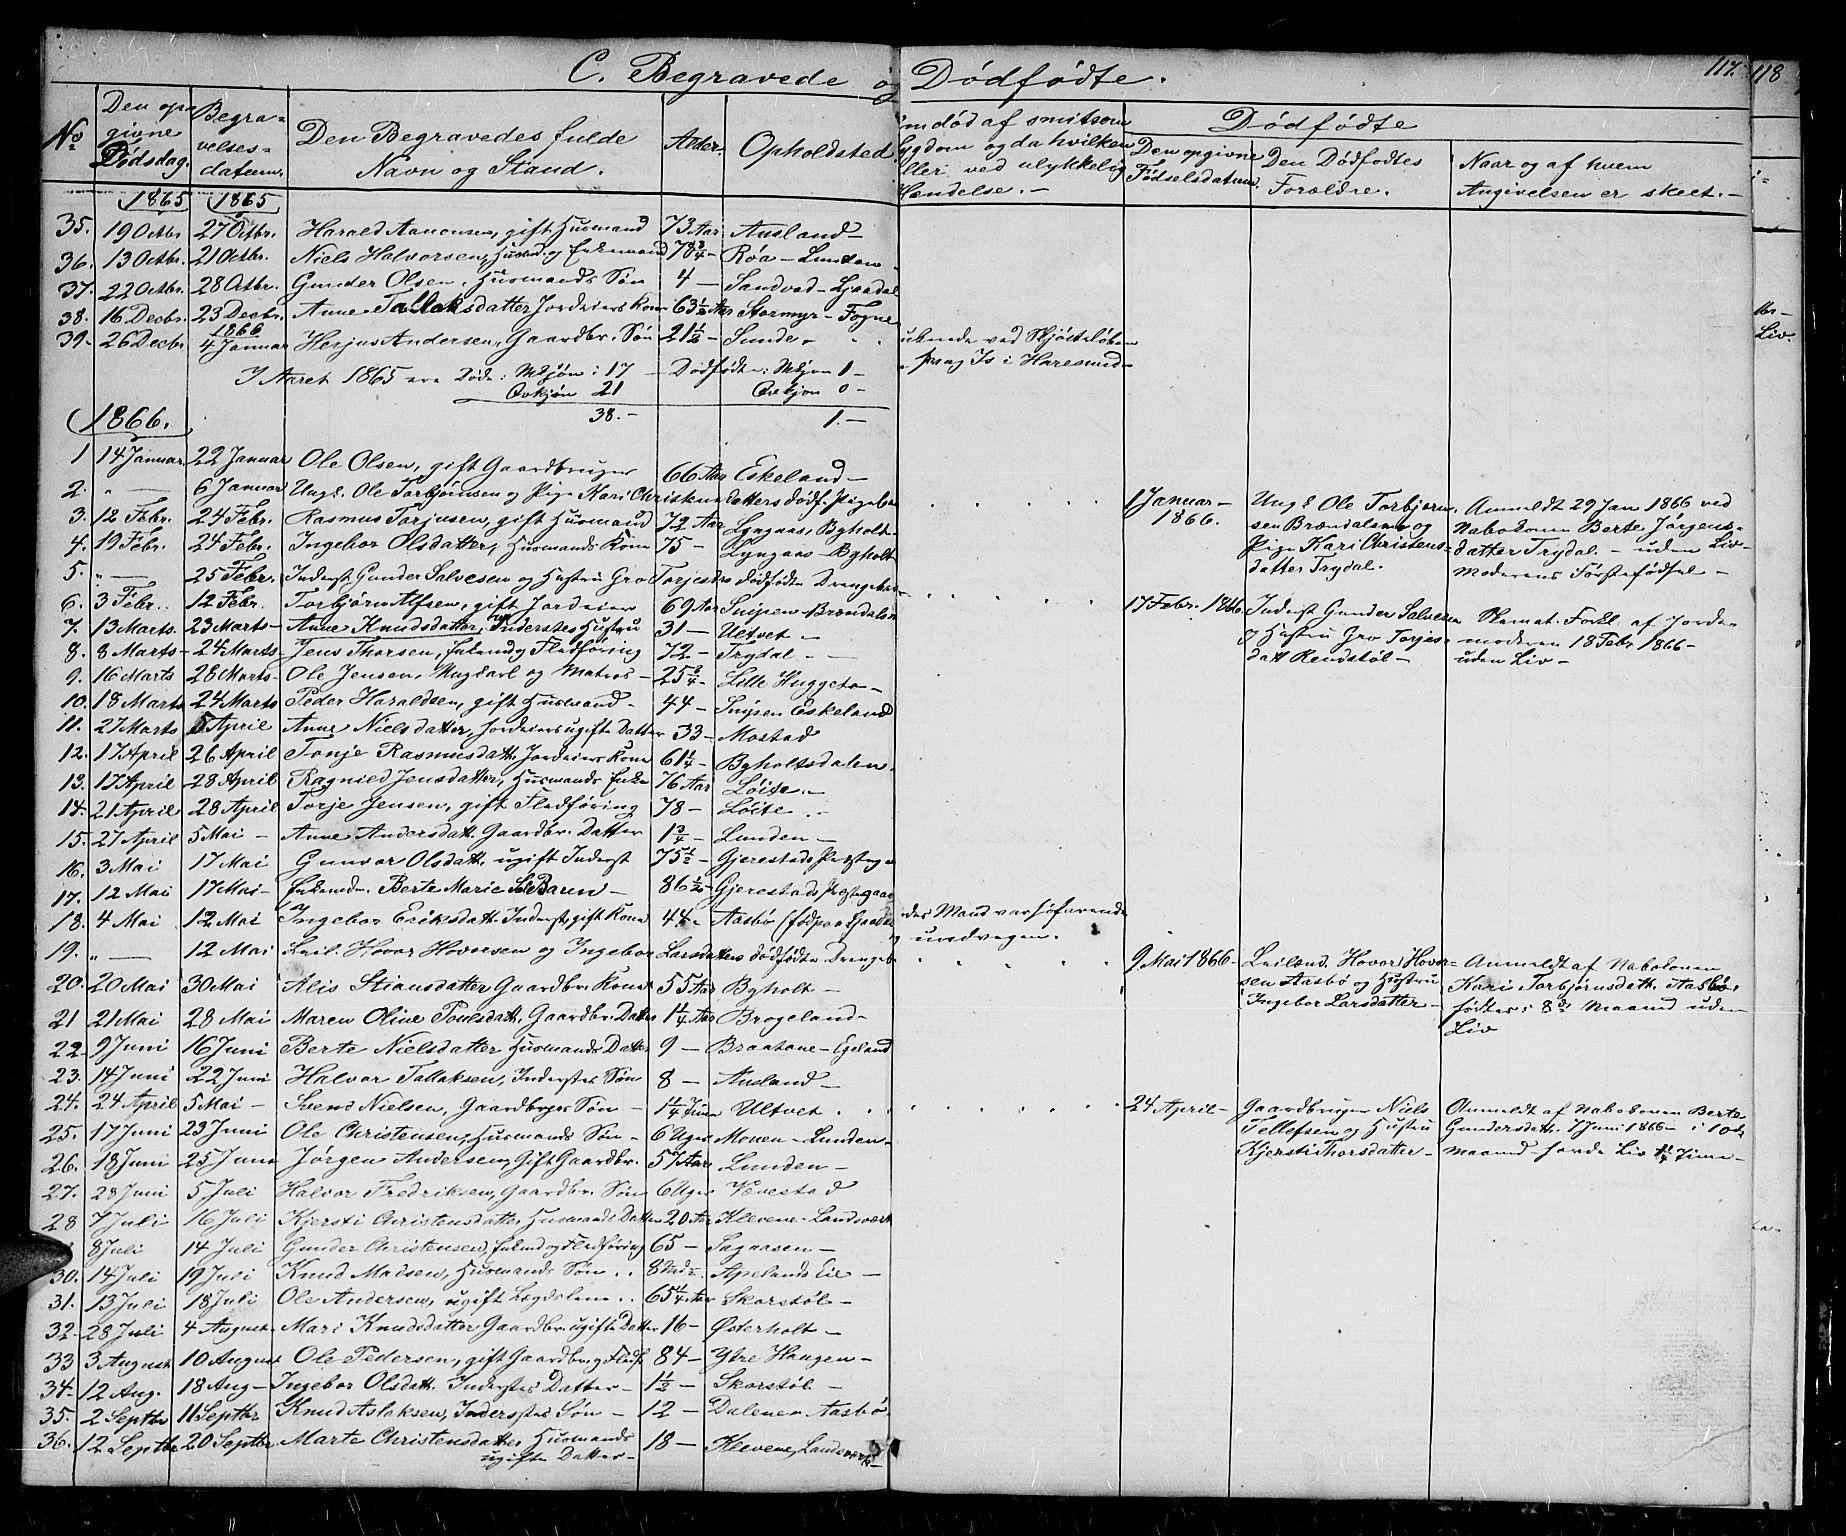 C. Begravede og Dødfødte.
117. 118
No
Den opgivne Dødsdag.
Begravelsesdatum.
Den Begravedes fulde Navn og Stand.
Alder.
Opholdsted
Om død af smitsom Sygdom og da hvilken eller ved ulykkelig Hændelse.-
Dødfødte
Den opgivne Fødselsdatum.
Den Dødfødtes Forældre.
Naar og af hvem Angivelsen er skeet.-
1865 1865
35. 19 Octbr. 27 Octbr. Harald Aanonsen, gift Husmand 73 Aar Ausland-
36. 13 Octbr. 21 Octbr. Niels Halvorsen, Husmd. og Enkemand 78 3/4 - Røa - Lunden -
37. 22 Octbr. 28 Octbr. Gunder Olsen, Husmands Søn 4 - Sandvad - Ljaadal
38. 16 Decbr. 23 Decbr. Anne Tallaksdatter Jordeiers Kone 63 1/2 Aar Stormyr - Fogne
39- 26 Decbr 1866 4 Januar Herjus Andersen, Gaardbr. Søn 21 1/2 - Sunde - druknede ved Skjøiteløben paa Is i Haresund-
I Aaret 1865 ere Døde: MKjøn: 17 - Dødfødte: MKjøn 1-
Qvkjøn 21 Qvkjøn 0-
38.- 1.-
1866.
1 14 Januar 22 Januar Ole Olsen, gift Gaardbruger 66 Aar Eskeland-
2. " - 6 Januar Ungk. Ole Torbjørnsen og Pige Kari Christensdatters dødf. Pigebarn 1 Januar- 1866. Ungk. Ole Torbjørnsen Brændalsmo og Pige Kari Christensdatter Trydal. Anmeldt 29 Jan 1866 ved Nabokonen Berte Jørgensdatter Trydal. - uden Liv- Moderens Førstefødsel -
3. 12 Febr. 24 Febr. Rasmus Torjusen, gift Husmand 72 Aar Lyngaas, Byholt-
4. 19 Febr. 24 Febr. Ingebor Olsdatter, Husmands Kone 75- Lyngaas - Byholt
5. " - 25 Febr. Inderst Gunder Salvesen og Hustru Gro Torjesdtrs dødfødte Drengebarn 17 Febr. 1866. Inderst Gunder Salvesen og Hustru Gro Torjesdatt Rendstøl- Skemat. Forkl. af Jordemoderen 18 Febr 1866- uden Liv-
6. 3 Febr.. 12 Febr. Torbjørn Alfsen, gift Jordeier 69 Aar Snipen - Brændalsmo
7. 13 Marts. 23 Marts- Anne Knudsdatter, Inderstes Hustru 31 - Ultvet -
8. 8 Marts- 24 Marts- Jens Thorsen, Enkemd og Fledføring 72- Trydal -
9. 16 Marts 28 Marts- Ole Jensen, Ungkarl og Matros- 25 3/4 - Lille Huggeto-
10. 18 Marts 24 Marts Peder Haraldsen, gift Husmand- 44 - Snipen Eskeland
11. 27 Marts 5 April Anne Nielsdatter, Jordeiers ugifte Datter 33- Mostad
12. 17 April 26 April Tonje Rasmusdatt. Jordeiers Kone 61 1/4 - Byholtsdalen.
13. 17 April 28 April Ragnild Jensdatter, Husmands Enke 76 Aar Løite.-
14. 21 April 28 April Torje Jensen, gift Fledføring 78- Løite.-
15. 27 April 5 Mai - Anne Andersdatt. Gaardbr. Datter 1 3/4 - Lunden-
16. 3 Mai 17 Mai Gunvor Olsdatt. ugift Inderst 75 1/2 - Gjerestads Præstega
17. 12 Mai 17 Mai- Enkemd. Berte Marie Le Barun- 86 1/2 - Gjerestads Præstegaar
18. 4 Mai 12 Mai Ingebor Eriksdatt. Inderst, gift Kone 44- Aasbø (fød paa Ljaadal des Mand var søfarende og undvegen.
19. " - 12 Mai Leil. Hovor Hovorsen og Ingebor Larsdatters dødfødte Drengeb 9 Mai 1866- Leilænd. Hovor Hovorsen Aasbø og Hustru Ingebor Larsdatter- Anmeldt af Nabokonen Kari Torbjørnsdatt. Aasbø. fødtes i 8de Maaned uden Liv
20. 20 Mai 30 Mai Alis Stiansdatter Gaardbr. Kone 55 Aar Byholt-
21 21 Mai 28 Mai Maren Oline Poulsdatt. Gaardbr. Datter 1 1/4 Aar Brogeland-
22- 9 Juni 16 Juni Berte Nielsdatter Husmands Datter 9 - Braatane - Egeland
23. 14 Juni 22 Juni Halvor Tallaksen, Inderstes Søn 8 - Ausland-
24. 24 April 5 Mai - Svend Nielsen, Gaardbrgers Søn - 1 1/4 Time Ultvet. 24 April- Gaardbruger Niels Tellefsen og Hustru Kjersti Thorsdatter- Anmeldt af Nabokonen Berte Gundersdatt. 7 Juni 1866- i 10de Maaned- havde Liv 1 1/4 Time-
25. 17 Juni 23 Juni Ole Christensen, Husmands Søn - 6 Uger Monen - Lunden-
26. 18 Juni 25 Juni Jørgen Andersen, Gift Gaardbr. 57 Aar Lunden-
27. 28 Juni 5 Juli Halvor Fredriksen, Gaardbr. Søn 6 Uger Vævestad
28 7 Juli 16 Juli Kjersti Christensdatter Husmands Datter 20 Aar Klevene - Landsværk
8 Juli 14 Juli Gunder Christensen, Enkmd og Fledføring 65 - Sagaasen-
30. 14 Juli 19 Juli Knud Madsen, Husmands Søn.. 8 Apelands Eie -
31. 13 Juli 18 Juli Ole Andersen, ugift Lægdslem.. 65 1/4 Aar Skorstøl-
32- 28 Juli 4 August- Mari Knudsdatter Gaardbr. ugifte Datter 16- Østerholt-
33 3 August 10 August Ole Pedersen, gift Gaardbr. og Fledf. 84- Ytre Haugen-
34. 12 Aug. 18 Aug- Ingebor Olsdatt. Inderstes Datter- 1 1/2 - Skorstøl-
35. 2 Septbr 11 Septbr Knud Aslaksen, Inderstes Søn - 12 - Dalene - Aasbø-
36. 12 Septbr 20 Septbr Marte Christensdatter Husmands ugifte Datter- 18 - Klevene, Landsværk-